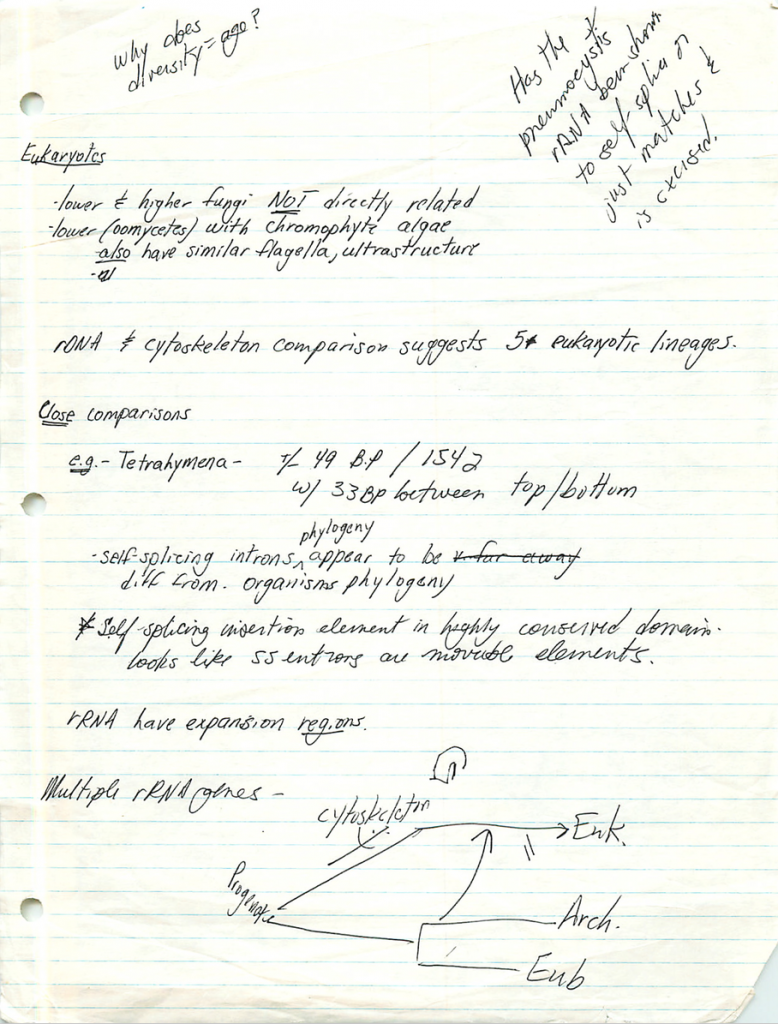 why does
diversity = age?
Has the
pneumocystis
rRNA been shown
to self-splice or
just matches &
is excised.
Eukaryotes
-lower & higher fungi NOT directly related
-lower (oomycetes) with chromophyte algae
also have similar flagella, ultrastructure
rDNA & cytoskeleton comparison suggests 5+ eukaryotic lineages.
Close comparisons
e.g. - Tetrahymena - 49 B.P / 1542
w/ 33 BP between top/bottum
phylogeny
-self-splicing introns ^ appear to be far away
diff from. organisms phylogeny
* Self-splicing insertion element in highly conserved domain.
looks like SS entrons are movable elements.
rRNA have expansion regions.
Multiple rRNA genes -
cytoskeleton
Euk.
Progenote
Arch.
Eub